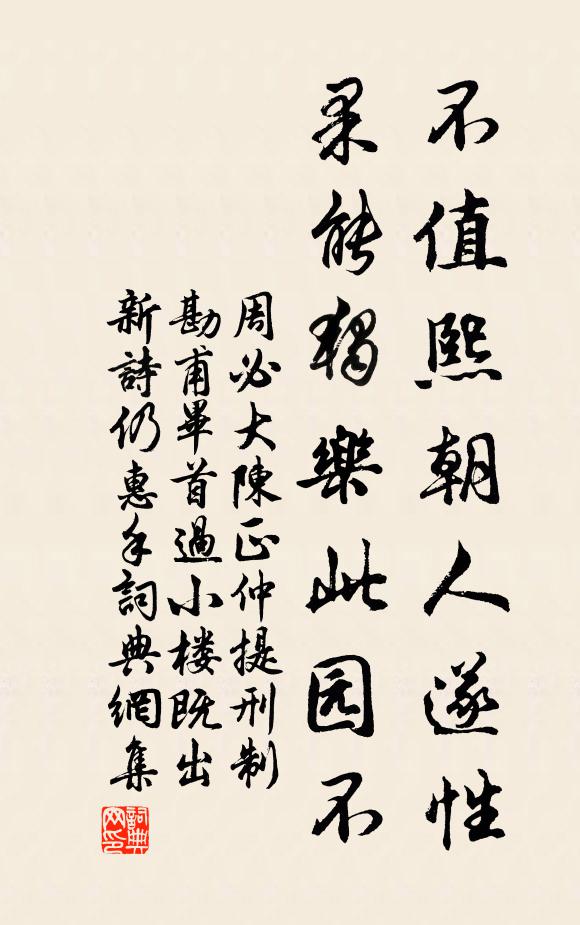 不值熙朝人遂性
果能獨樂此园不
周必大陳正仲提刑制
勘甫畢首過小楼既出
新詩仍惠手詞典網集
詞典网印